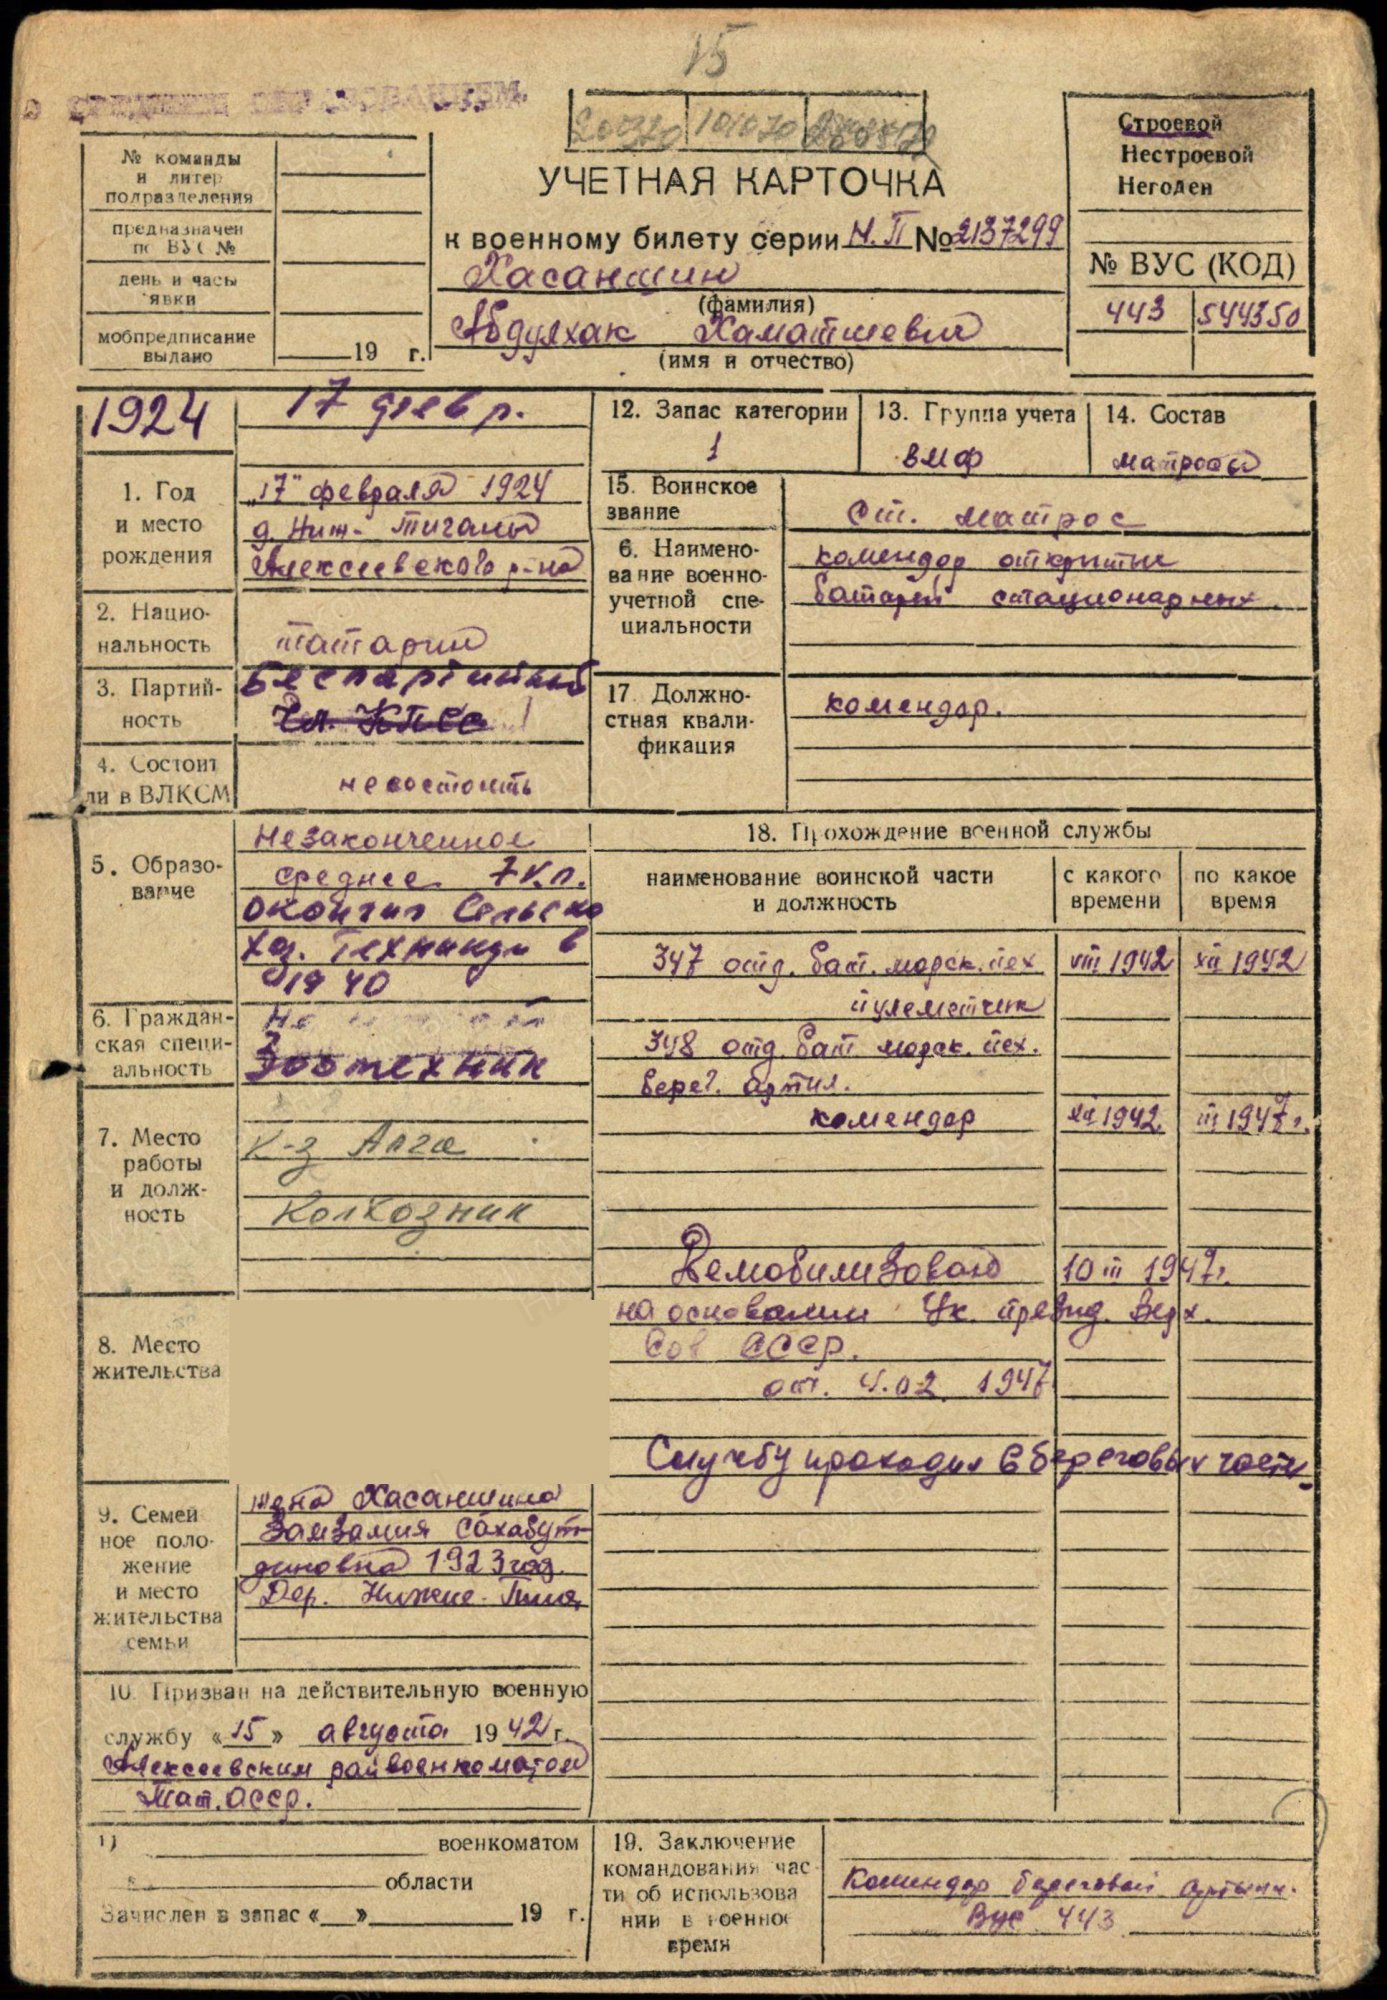 15
СРЕДНИМ ОБРАЗОВАНИЕМ.
101070
Строевой
Нестроевой
Негоден
№ команды
и литер
подразделения
предназначен
по ВУС №
день и часы
явки
мобпредписание
выдано
19 г.
УЧЕТНАЯ КАРТОЧКА
к военному билету серии Н.П №2137299
Хасаншин
(фамилия)
Абдулхак Хаматшевич
(имя и отчество)
№ ВУС (КОД)
443 544350
1924
17 февр.
1. Год
и место
рождения
„17" февраля 1924
д. Ниж- Тиганы
Алексеевского р-на
2. Нацио-
нальность
татарин
3. Партий-
ность
Беспартийный
Чл. КПСС
4. Состоит
ли в ВЛКСМ
не состоить
5. Образо-
вание
Незаконченное
среднее 7 кл.
окончил Сельско
хоз. Техникум в
1940
6. Граждан-
ская специ-
альность
Зоотехник
7. Место
работы
и долж-
ность
К-з Алга
Колхозник
8. Место
жительства
9. Семей
ное поло-
жение
и место
жительства
семьи
жена Хасаншина
Замзамия Сахабут-
диновна 1923 год.
Дер. Нижне-
10. Призван на действительную военную
службу «15» августа 1942 г.
Алексеевским райвоенкоматом
Тат. АССР.
11) военкоматом
области
Зачислен в запас « » 19 г.
12. Запас категории
1
13. Группа учета
ВМФ
14. Состав
матросы
15. Воинское
звание
Ст. матрос
6. Наимено-
вание военно-
учетной спе-
циальности
комендор открытых
батарей стационарных.
17 Должно-
стная квали-
фикация
комендор.
18. Прохождение военной службы
наименование воинской части
и должность
с какого
времени
по какое
время
347 отд. бат. морск. пех VIII 1942 XII 1942
пулеметчик
348 отд. бат морск. пех.
берег. артил.
комендор XII 1942. III 1947 г.
Демобилизован 10 III 1947г.
на основании Ук. презид. Верх.
Сов СССР.
от. 4.02 1947
Службу проходил в береговых части
19. Заключение
командования час
ти об использова
нии в военное
время
Комендор береговой артилл.
ВУС 443